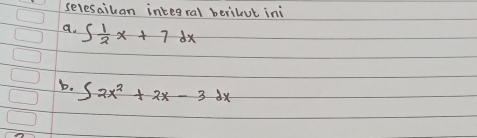 selesaikan integral berikut ini
a. ∫ 1/2 x + 7 dx
b. ∫ 2x² + 2x - 3 dx